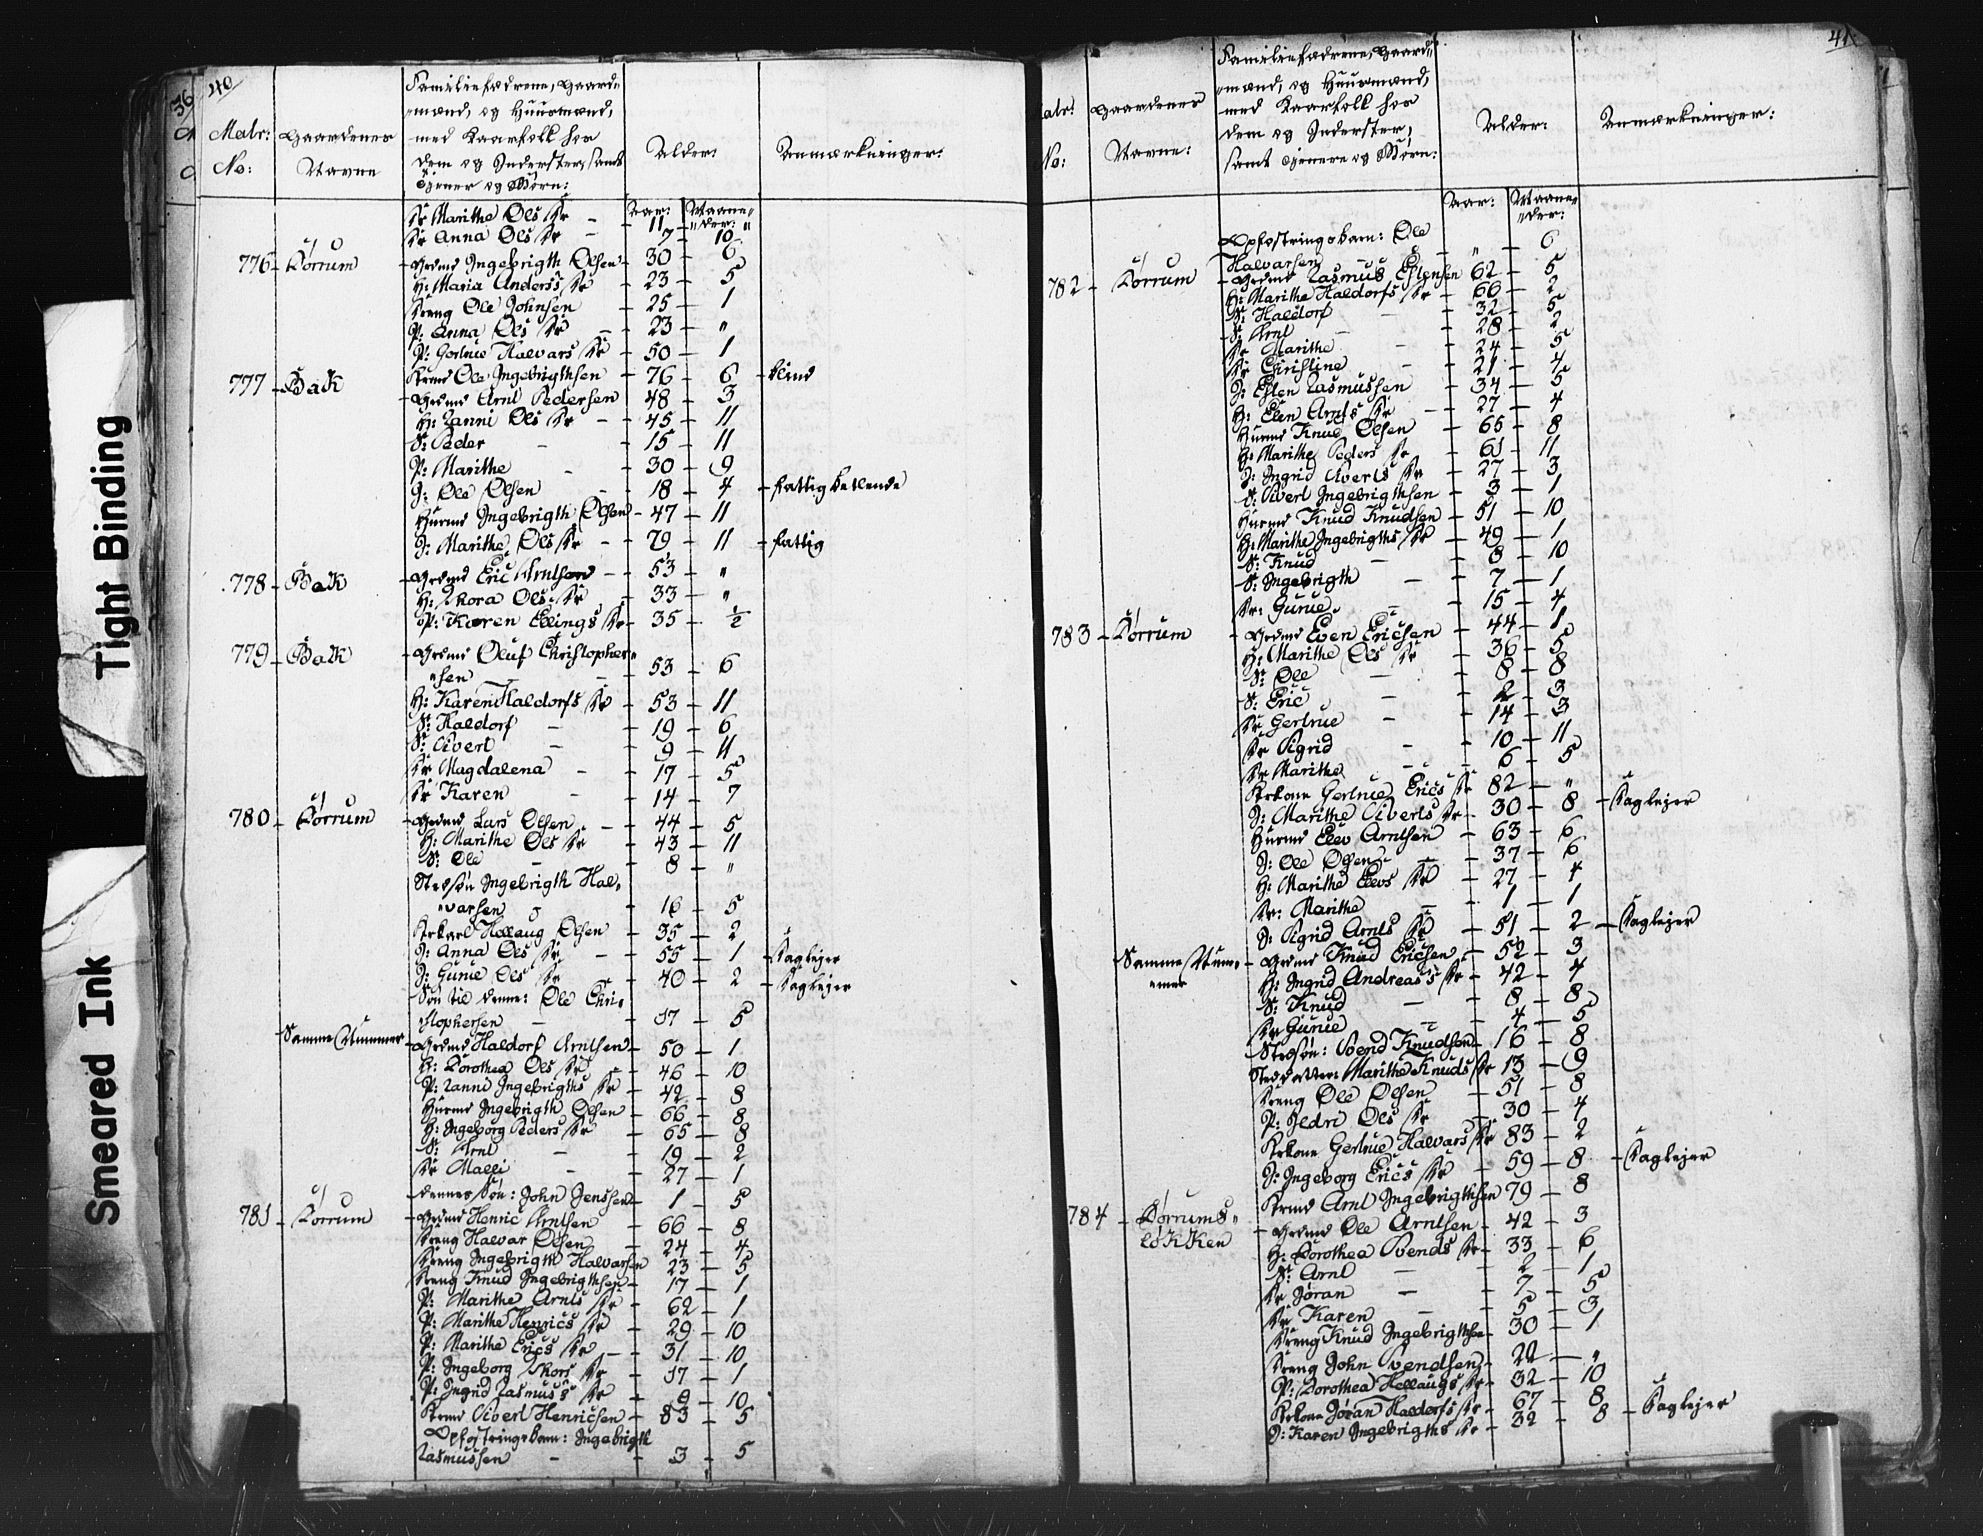 Tight Binding
Smeared Ink
36
40
Matr:
No:
Gaardenes
Navne
Familiefædrene, Gaard=
mænd, og Huusmænd,
med Kaarfolk hos
dem og Inderster, samt
Tjener og Børn:
Alder:
Anmærkninger:
Aar: Maane=
der:
Kr Marithe Ols Kr - 11 - "
Kr Anna Ols Kr - 7 - 10
776 - Dørrum - Grdmd Ingebrigth Olsen - 30 - 6
H: Maria Anderss Kr - 23 - 5
Dreng Ole Johnsen - 25 - 1
P: Anna Ols Kr - 23 - "
P: Gertrue Halvars Kr - 50 - 1
Krmd Ole Ingebrigthsen - 76 - 6 - blind
777 - Bak - Grdmd Arnt Pedersen - 48 - 3
H: Zanni Ols Kr - 45 - 11
S: Peder - 15 - 11
P: Marithe - 30 - 9
I: Ole Olsen - 18 - 4 - fattig betlende
Husmd Ingebrigth Olsen - 47 - 11
I: Marithe Ols Kr - 79 - 11 - fattig
778 - Bak - Grdmd Eric Arntsen - 53 - "
H: Thora Ols Kr - 33 - "
P: Karen Ellings Kr - 35 - ½
779 - Bak - Grdmd Oluf Christopher=
sen - 53 - 6
H: Karen Haldorfs Kr - 53 - 11
S: Haldorf - 19 - 6
S: Sivert - 9 - 11
Kr Magdalena - 17 - 5
Kr Karen - 14 - 7
780 - Dørrum - Grdmd Lars Olsen - 44 - 5
H: Marithe Ols Kr - 43 - 11
S: Ole - 8 - "
Stedsøn Ingebrigth Hal=
varsen - 16 - 5
Krkarl Hellaug Olsen - 35 - 2
I: Anna Ols Kr - 55 - 1 - Daglejer
I: Gurue Ols Kr - 40 - 2 - Daglejer
Søn til denne: Ole Chri=
stophersen - 17 - 5
Samme Nummer - Grdmd Haldorf Arntsen - 50 - 1
H: Dorothea Ols Kr - 46 - 10
P: Zanni Ingebrigths Kr - 42 - 8
Husmd Ingebrigth Olsen - 66 - 8
H: Ingeborg Peders Kr - 65 - 8
S: Arnt - 19 - 2
Kr Malli - 27 - 1
dennes Søn: John Jenssen - 1 - 5
781 - Dørrum - Grdmd Henric Arntsen - 66 - 8
Dreng Halvar Olsen - 24 - 4
Dreng Ingebrigth Halvarsen 23 - 5
Dreng Knud Ingebrigthsen - 17 - 1
P: Marithe Arnts Kr - 62 - 1
P: Marithe Henrics Kr - 29 - 10
P: Marithe Erics Kr - 31 - 10
P: Ingeborg Thors Kr - 17 - 1
P: Ingrid Rasmuss Kr - 9 - 10
Krmd Sivert Henricsen - 83 - 5
Opfostringsbarn: Ingebrigth
Rasmussen - 3 - 5
41
Matr:
No:
Gaardenes
Navne:
Familiefædrene, Gaard=
mænd, og Huusmænd,
med Kaarfolk hos
dem og Inderster,
samt Tjenere og Børn:
Alder:
Anmærkninger:
Aar: Maane=
der:
Opfostringsbarn: Ole
Halvarsen - " - 6
782 - Dørrum - Grdmd Rasmus Estensen 62 - 5
H: Marithe Haldorfs Kr - 66 - 2
S: Haldorf - 32 - 5
S: Arnt - 28 - 2
Kr Marithe - 24 - 5
Kr Christine - 21 - 4
I: Esten Rasmussen - 34 - 5
H: Elen Arnts Kr - 27 - 4
Husmd Knud Olsen - 65 - 8
H: Marithe Peders Kr - 61 - 11
I: Ingrid Siverts Kr - 27 - 3
S: Sivert Ingebrigthsen - 3 - 1
Husmd Knud Knudsen - 51 - 10
H: Marithe Ingebrigths Kr - 49 - 1
S: Knud - 8 - 10
S: Ingebrigth - 7 - 1
Kr: Gurue - 15 - 4
783 - Dørrum - Grdmd Even Ericsen - 44 - 1
H: Marithe Ols Kr - 36 - 5
S: Ole - 8 - 8
S: Eric - 2 - 3
Kr Gertrue - 14 - 3
Kr Sigrid - 10 - 11
Kr Marithe - 6 - 5
Krkone Gertrue Erics Kr 82 - "
I: Marithe Siverts Kr - 30 - 8 - Daglejer
Husmd Elev Arntsen - 63 - 6
I: Ole Olsen - 37 - 6
H: Marithe Elevs Kr - 27 - 4
Kr: Marithe - 1 - 1
I: Sigrid Arnts Kr - 51 - 2 - Daglejer
Samme Num=
mer - Grdmd Knud Ericsen - 52 - 3
H: Ingrid Andreas's Kr - 42 - 4
S: Knud - 8 - 8
Kr Gurue - 4 - 5
Stedsøn: Svend Knudsen - 16 - 8
Steddatter: Marithe Knuds Kr 13 - 9
Dreng Ole Olsen - 51 - 8
P: Sedri Ols Kr - 30 - 4
Krkone Gertrue Halvars Kr 83 - 2
I: Ingeborg Erics Kr - 59 - 8 - Daglejer
Krmd Arnt Ingebrigthsen 79 - 8
784 - Dørrums=
løkken - Grdmd Ole Arntsen - 42 - 3
H: Dorothea Svends Kr - 33 - 6
S: Arnt - 2 - 1
Kr Jøran - 7 - 5
Kr Karen - 5 - 3
Dreng Knud Ingebrigthsen - 30 - 1
Dreng John Svendsen - 22 - "
P: Dorothea Hellaugs Kr - 32 - 10
Krkone Jøran Haldorfs Kr - 67 - 8
I: Karen Ingebrigths Kr - 32 - 8 - Daglejer